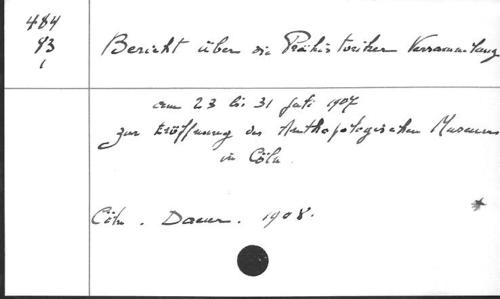 484
93
1
Bericht über die Prähistoriker Versammlung
am 23 bis 31 Juli 1907
zur Eröffnung des Anthropologischen Museums
in Cöln.
Cöln. Dauer. 1908.
*